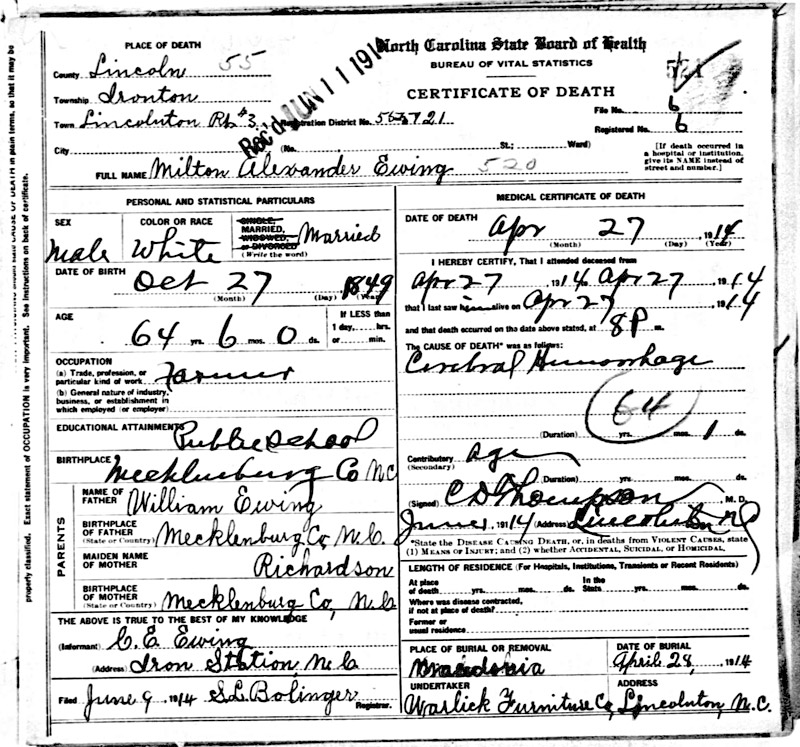 North Carolina State Board of Health
BUREAU OF VITAL STATISTICS
CERTIFICATE OF DEATH
PLACE OF DEATH
County Lincoln 55
Township Ironton
Town Lincolnton Rt #3
Rec'd JUN 11 1914
Registration District No. 55-5721
File No. 6
Registered No. 6
City (No. St.; Ward)
[If death occurred in a hospital or institution, give its NAME instead of street and number.]
FULL NAME Milton Alexander Ewing 520
PERSONAL AND STATISTICAL PARTICULARS
SEX Male
COLOR OR RACE White
SINGLE, MARRIED, WIDOWED, or DIVORCED (Write the word) Married
DATE OF BIRTH Oct 27 1849
(Month) (Day) (Year)
AGE 64 yrs. 6 mos. 0 ds.
If LESS than 1 day, hrs. or min.
OCCUPATION
(a) Trade, profession, or particular kind of work Farmer
(b) General nature of industry, business, or establishment in which employed (or employer)
EDUCATIONAL ATTAINMENTS Public School
BIRTHPLACE Mecklenburg Co N.C.
PARENTS
NAME OF FATHER William Ewing
BIRTHPLACE OF FATHER (State or Country) Mecklenburg Co, N.C.
MAIDEN NAME OF MOTHER Richardson
BIRTHPLACE OF MOTHER (State or Country) Mecklenburg Co, N.C.
THE ABOVE IS TRUE TO THE BEST OF MY KNOWLEDGE
(Informant) C. E. Ewing
(Address) Iron Station, N.C.
Filed June 9 1914 S. L. Bolinger Registrar.
MEDICAL CERTIFICATE OF DEATH
DATE OF DEATH Apr 27, 1914
(Month) (Day) (Year)
I HEREBY CERTIFY, That I attended deceased from
Apr 27 1914 Apr 27 1914
that I last saw him alive on Apr 27 1914
and that death occurred on the date above stated, at 8 P m.
The CAUSE OF DEATH* was as follows:
Cerebral Hemorrhage
64
(Duration) yrs. mos. 1 ds.
Contributory Age
(Secondary)
(Duration) yrs. mos. ds.
(Signed) C D Thompson M. D.
June 1 1914 (Address) Lincolnton NC
*State the DISEASE CAUSING DEATH, or, in deaths from VIOLENT CAUSES, state
(1) MEANS OF INJURY; and (2) whether ACCIDENTAL, SUICIDAL, or HOMICIDAL.
LENGTH OF RESIDENCE (For Hospitals, Institutions, Transients or Recent Residents)
At place of death yrs. mos. ds. In the State yrs. mos. ds.
Where was disease contracted, if not at place of death?
Former or usual residence
PLACE OF BURIAL OR REMOVAL Macedonia
DATE OF BURIAL April 28, 1914
UNDERTAKER Warlick Furniture Co,
ADDRESS Lincolnton, N.C.
CAUSE OF DEATH in plain terms, so that it may be
properly classified. Exact statement of OCCUPATION is very important. See instructions on back of certificate.